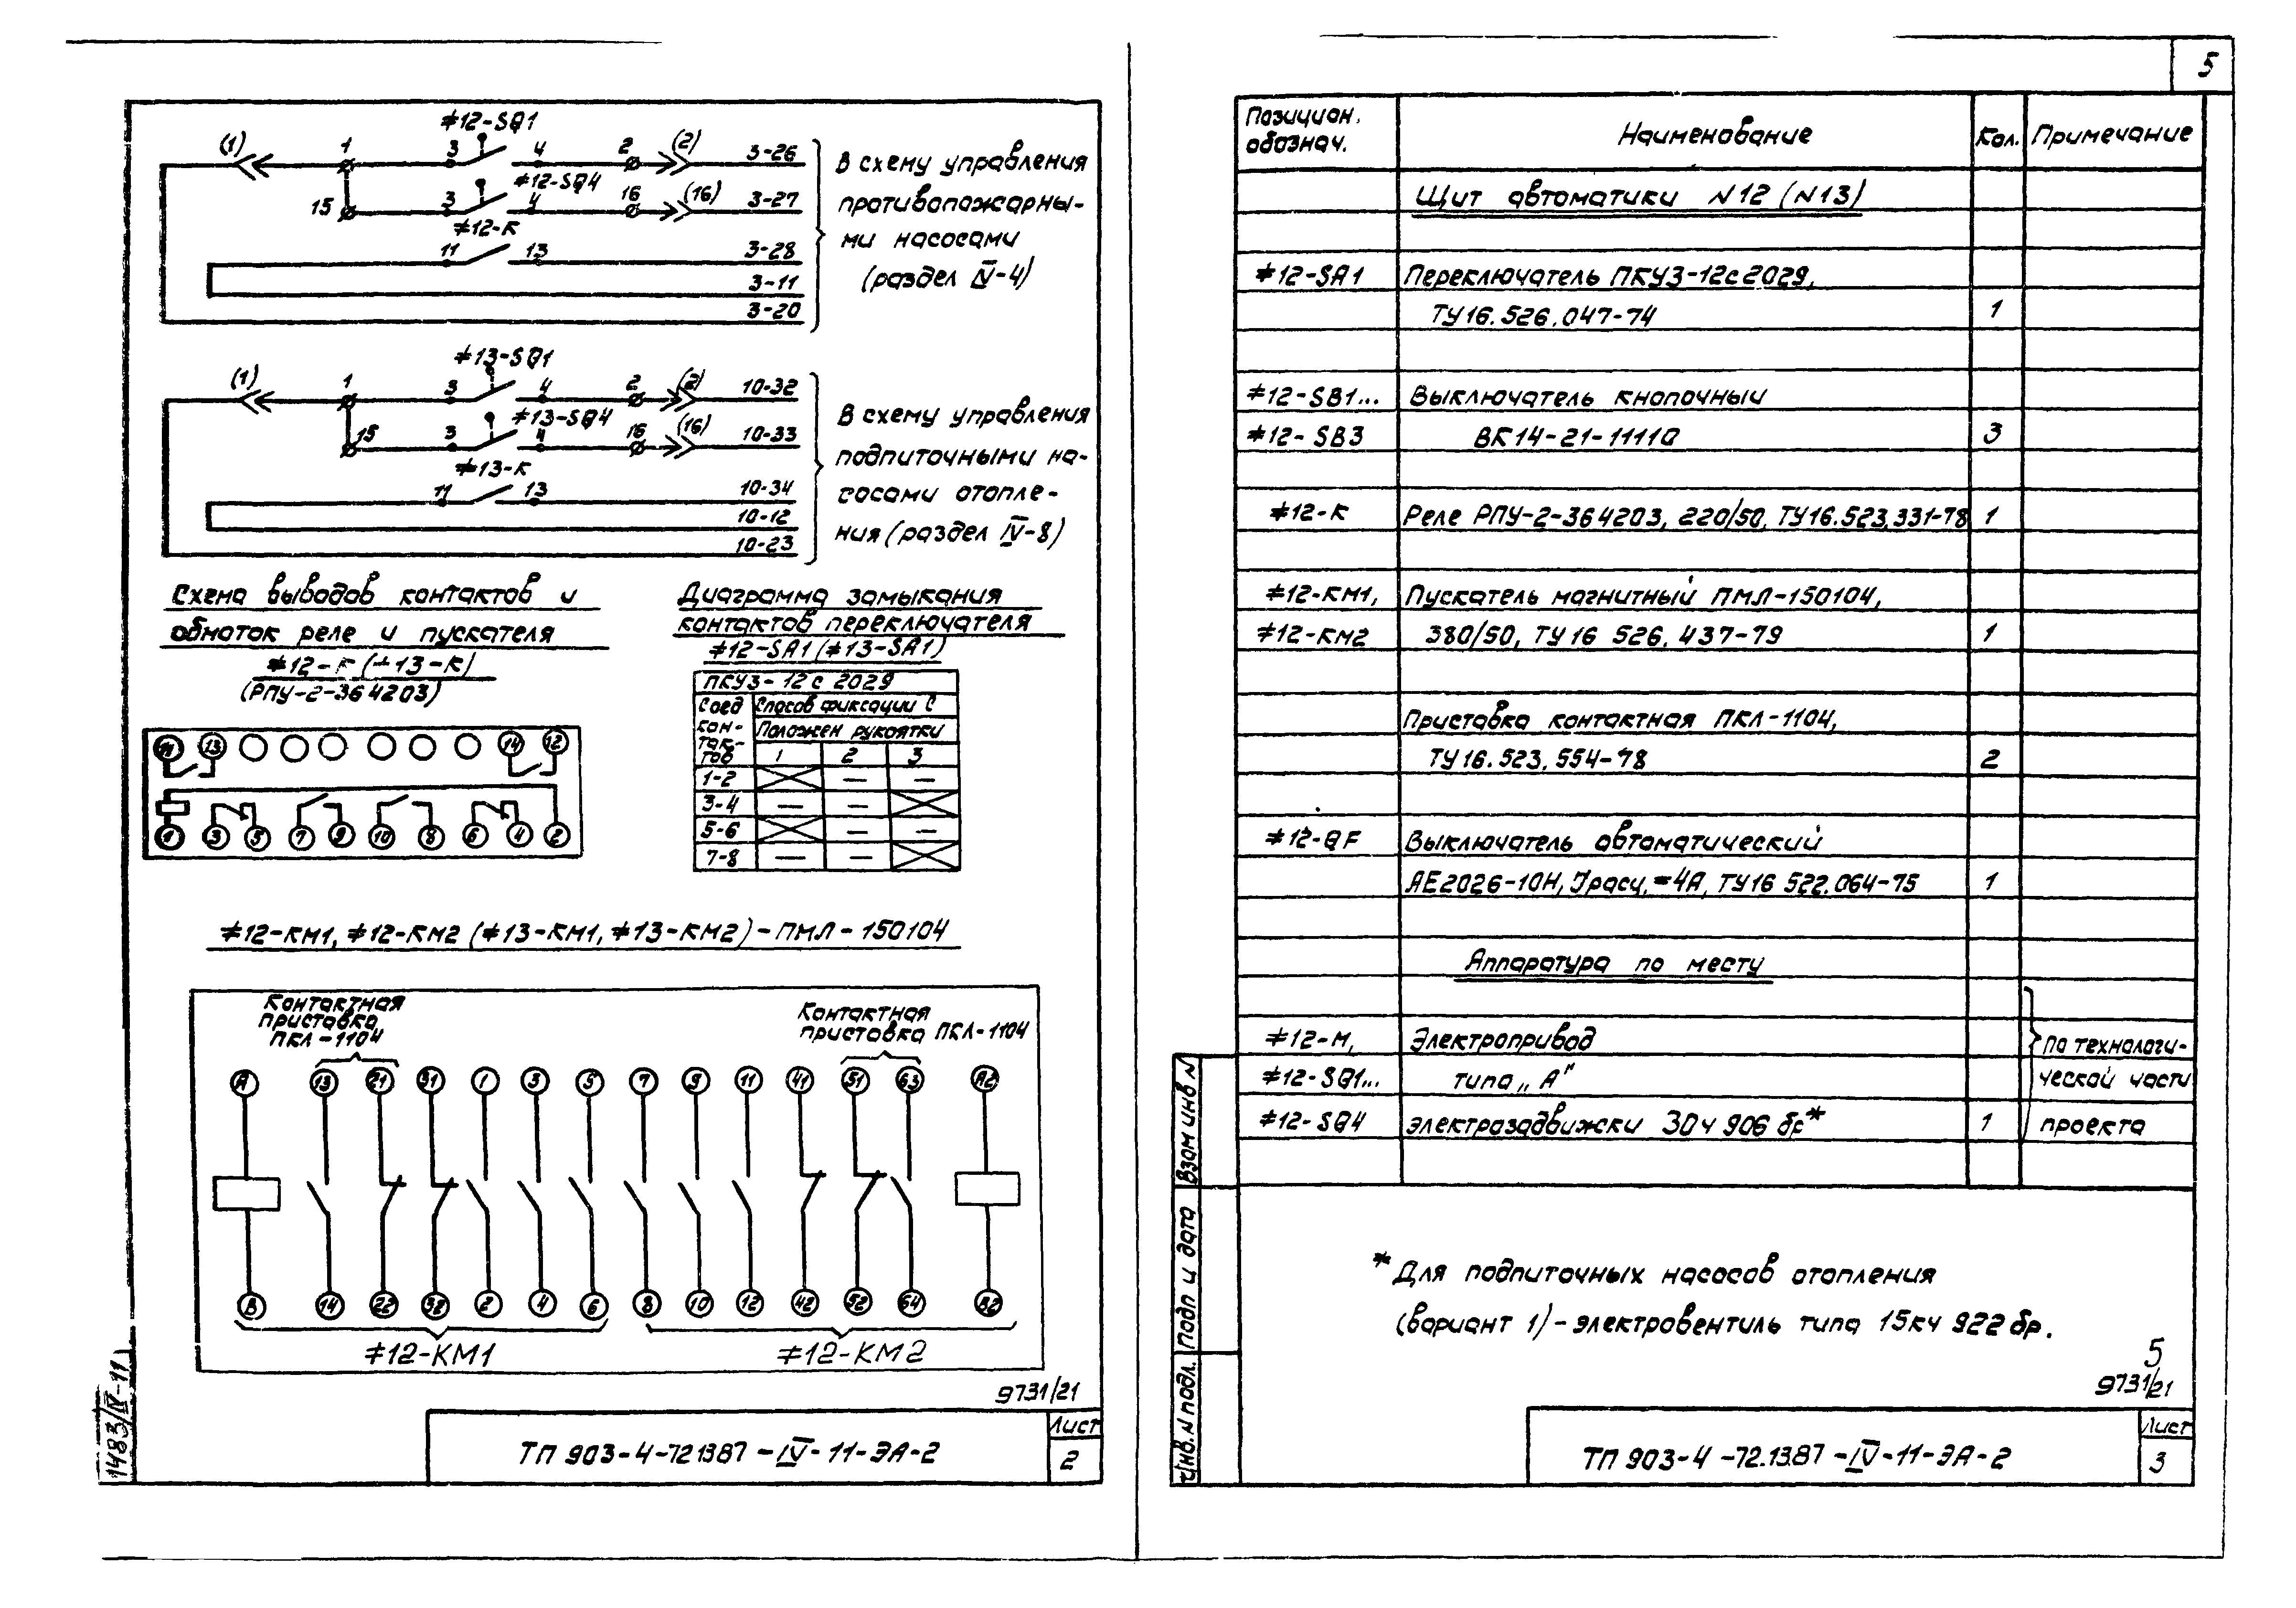 5
≠12-SQ1
(1) 1 3 4 2 (2) 3-26
≠12-SQ4
15 3 4 16 (16) 3-27
≠12-К
11 13 3-28
3-11
3-20
В схему управления
противопожарны-
ми насосами
(раздел IV-4)
≠13-SQ1
(1) 1 3 4 2 (2) 10-32
≠13-SQ4
15 3 4 16 (16) 10-33
≠13-К
11 13 10-34
10-12
10-23
В схему управления
подпиточными на-
сосами отопле-
ния (раздел IV-8)
Схема выводов контактов и
обмоток реле и пускателя
≠12-К (≠13-К)
(РПУ-2-364203)
11 13 14 12
1 3 5 7 9 10 8 6 4 2
Диаграмма замыкания
контактов переключателя
≠12-SA1 (≠13-SA1)
ПКУ3-12с 2029
Соед Способ фиксации С
кон- Положен рукоятки
так-
тов 1 2 3
1-2 — —
3-4 — —
5-6 — —
7-8 — —
≠12-КМ1, ≠12-КМ2 (≠13-КМ1, ≠13-КМ2) - ПМЛ-150104
Контактная
приставка
ПКЛ-1104
Контактная
приставка ПКЛ-1104
А 13 21 31 1 3 5 7 9 11 41 51 63 А2
В 14 22 32 2 4 6 8 10 12 42 52 64 В2
≠12-КМ1 ≠12-КМ2
9731/21
1483/IV-11
ТП 903-4-72 1387-IV-11-ЭА-2
Лист
2
Позицион. обознач. Наименование Кол. Примечание
Щит автоматики N12 (N13)
≠12-SA1 Переключатель ПКУ3-12с2029,
ТУ16.526.047-74 1
≠12-SB1... Выключатель кнопочный
≠12-SB3 ВК14-21-11110 3
≠12-К Реле РПУ-2-364203, 220/50, ТУ16.523.331-78 1
≠12-КМ1, Пускатель магнитный ПМЛ-150104,
≠12-КМ2 380/50, ТУ16 526.437-79 1
Приставка контактная ПКЛ-1104,
ТУ16.523.554-78 2
≠12-QF Выключатель автоматический
АЕ2026-10Н, Iрасц.=4А, ТУ16 522.064-75 1
Аппаратура по месту
≠12-М, Электропривод по технологи-
≠12-SQ1... типа „А" ческой части
≠12-SQ4 электрозадвижки 30ч 906 бр* 1 проекта
* Для подпиточных насосов отопления
(вариант 1) - электровентиль типа 15кч 922 бр.
5
9731/21
Взам инв N
Подп и дата
Инв. N подл.
ТП 903-4-72.1387-IV-11-ЭА-2
Лист
3